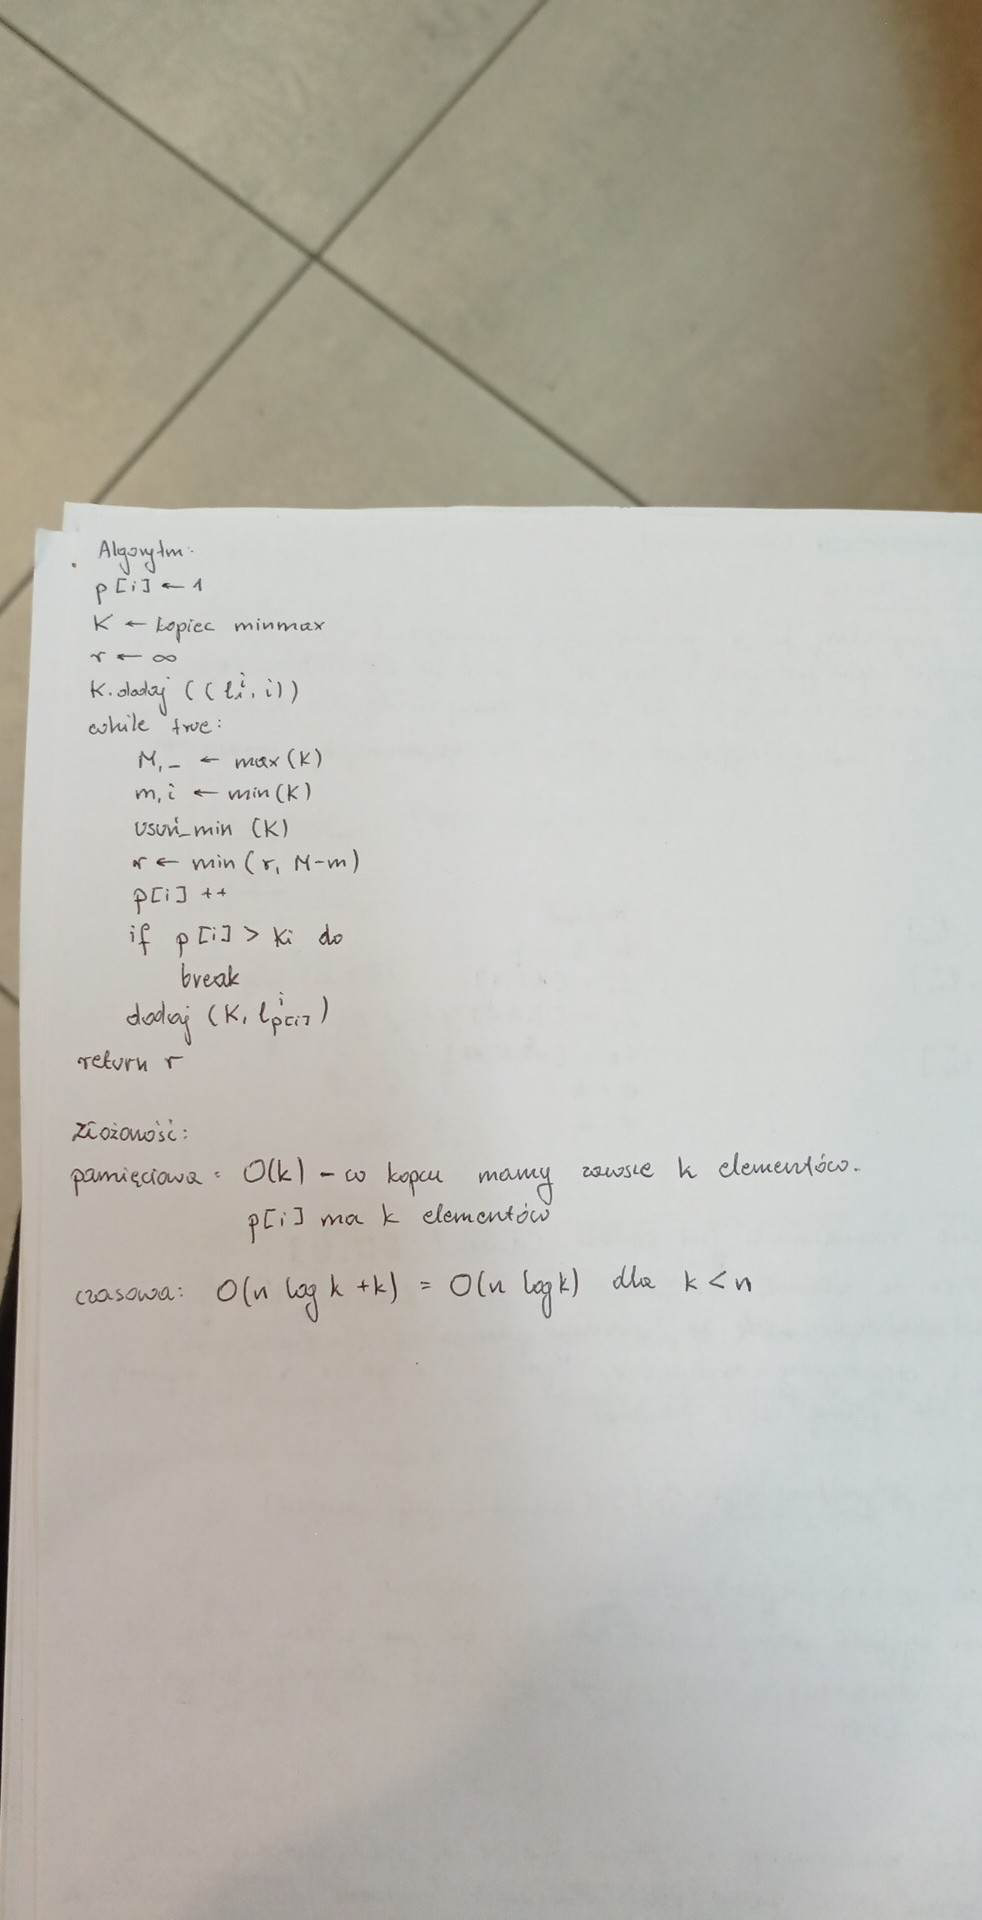 Algorytm:
p[i] ← 1
K ← kopiec minmax
r ← ∞
K.dodaj ((l_1^i, i))
while true:
M, _ ← max(K)
m, i ← min(K)
usuń_min (K)
r ← min(r, M-m)
p[i] ++
if p[i] > ki do
break
dodaj (K, l_{p[i]}^i)
return r
złożoność:
pamięciowa = O(k) – w kopcu mamy zawsze k elementów.
p[i] ma k elementów
czasowa: O(n log k + k) = O(n log k) dla k < n